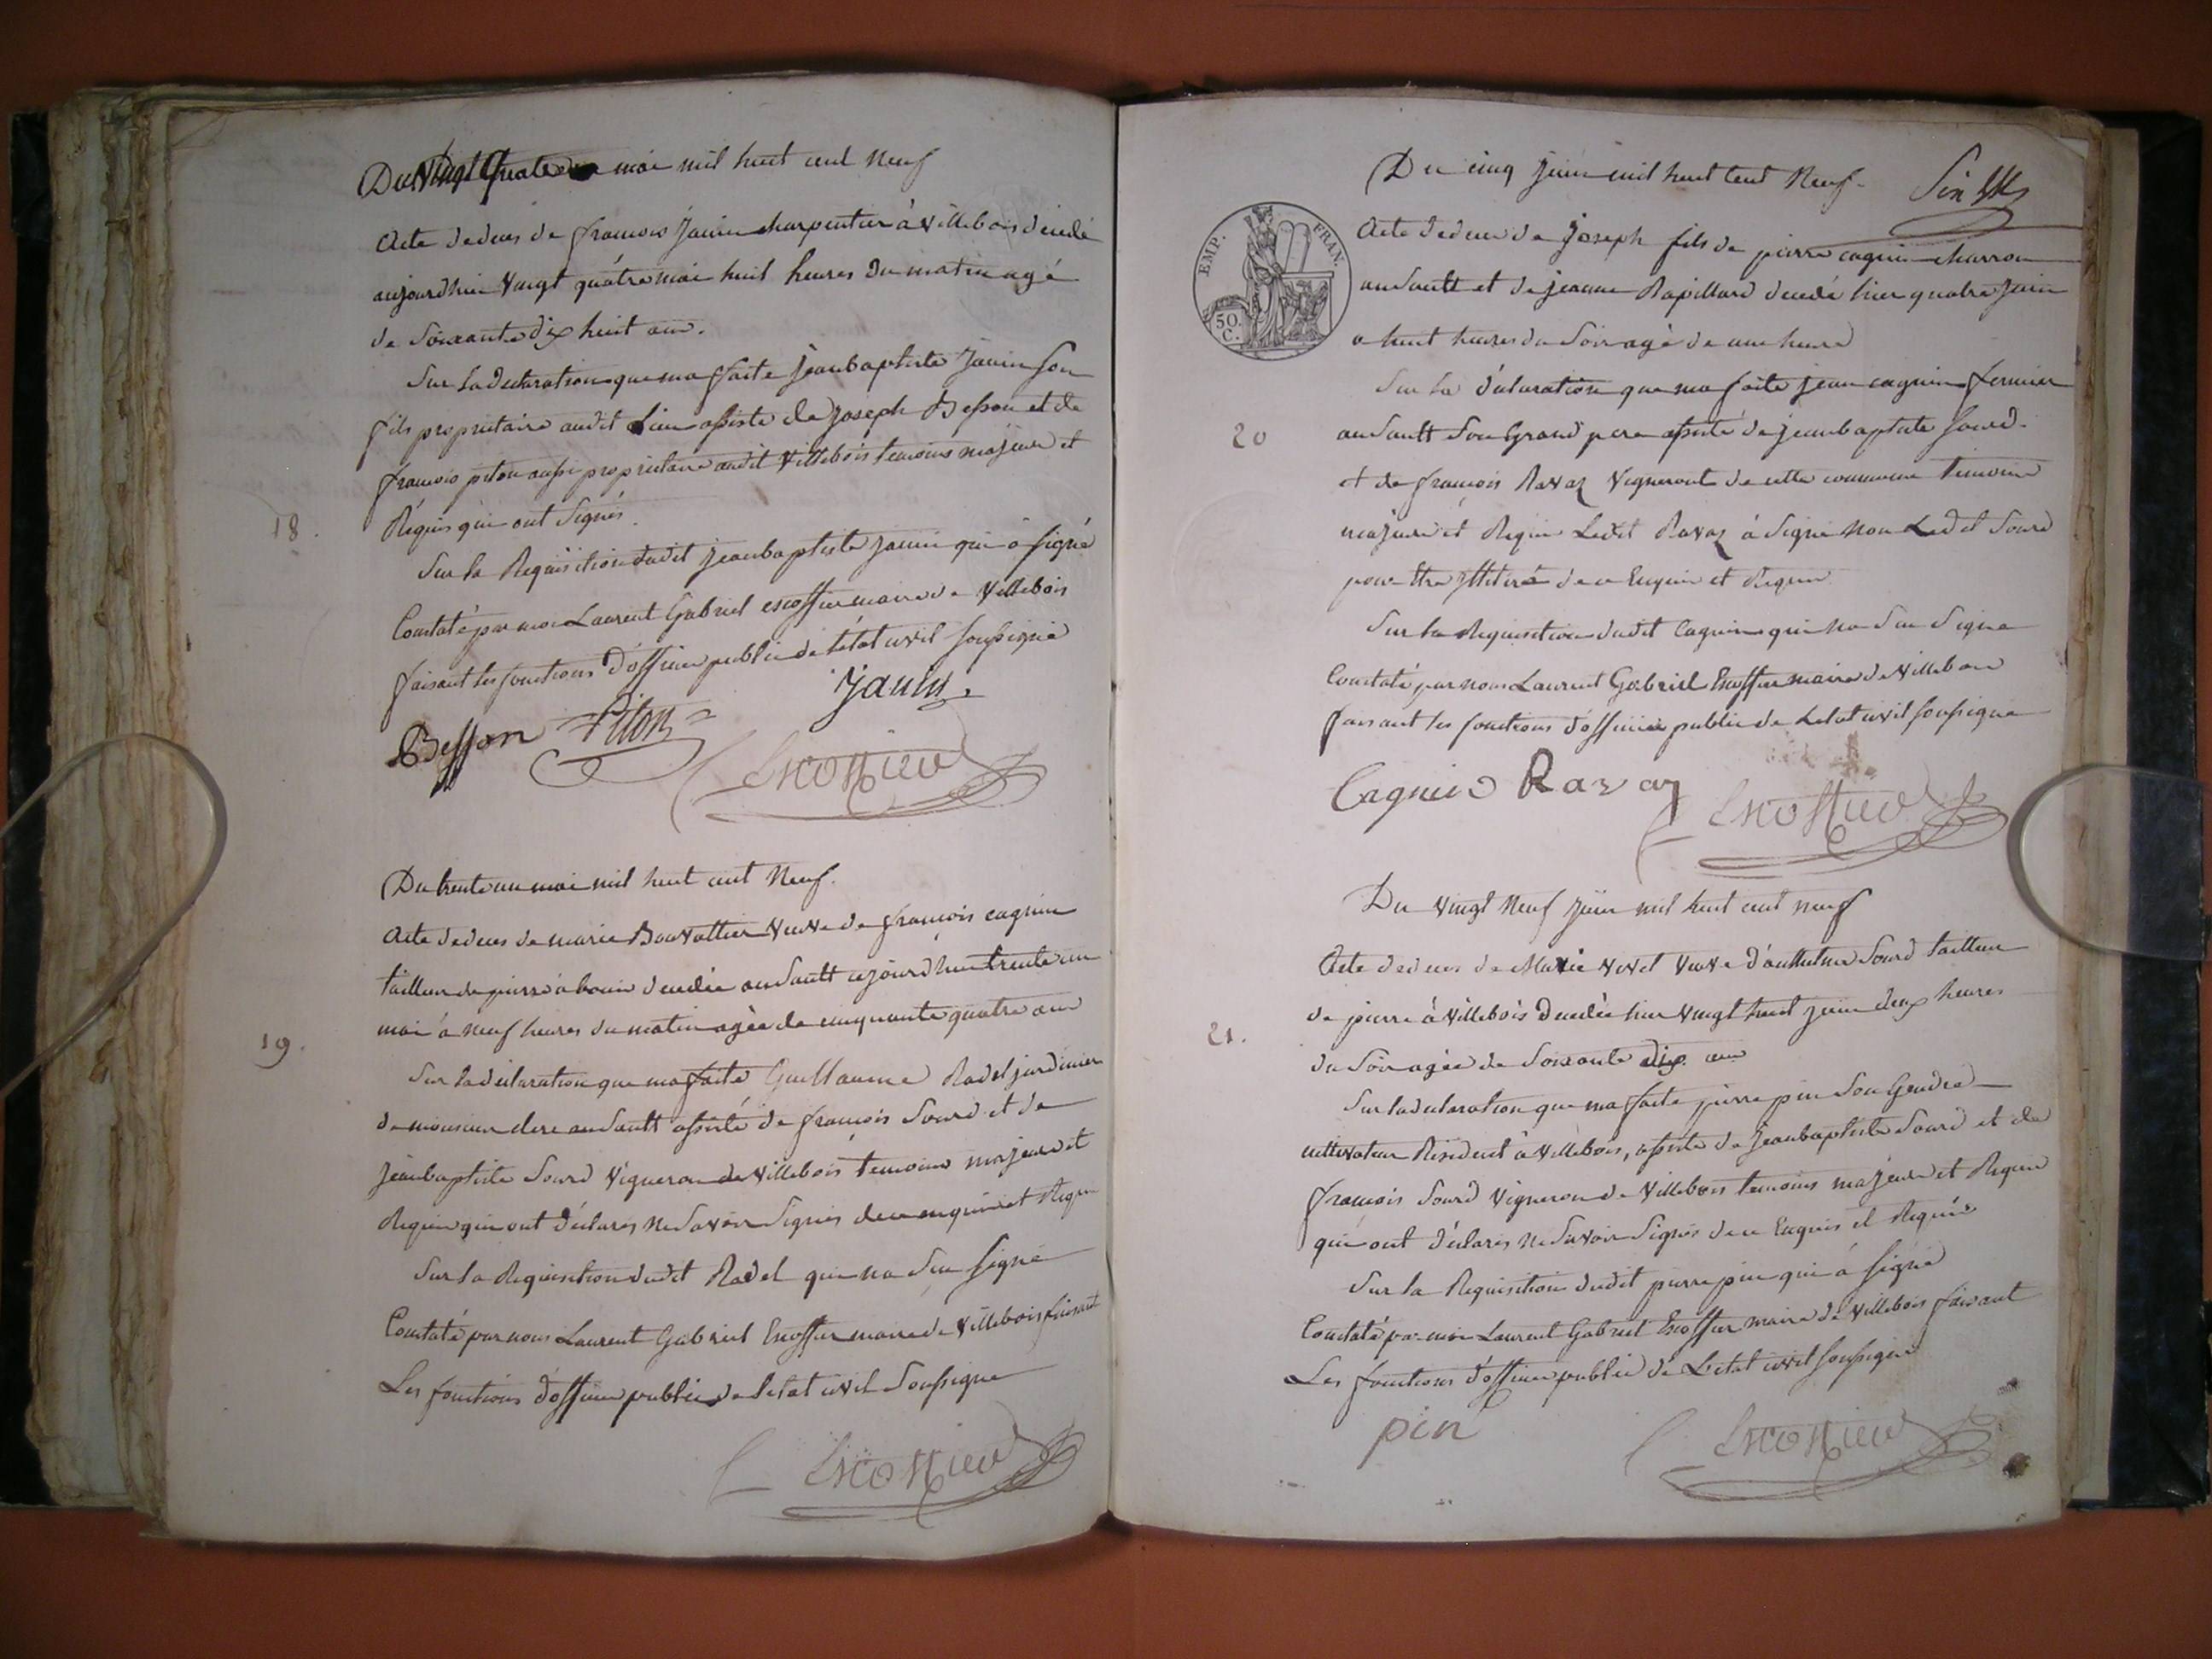 Du Vingt Quatre mai mil huit cent Neuf
Acte de deces de françois Janin charpentier à Villebois décédé
aujourdhui Vingt quatre mai huit heures du matin agé
de Soixante dix huit ans.
Sur la declaration que ma faite jeanbaptiste Janin son
fils proprietaire audit Lieu assisté de joseph Besson et de
françois piton aussi proprietaire audit Villebois temoins majeurs et
Requis qui ont Signés.
18.
Sur la Requisition dudit jeanbaptiste janin qui à signé
Constaté par moi Laurent Gabriel escoffier maire de Villebois
faisant les fonctions d'officier public de létat civil soussigné
Besson Piton Janin
Escoffier
Du trente un mai mil huit cent Neuf.
Acte de deces de marie Bouvattier Veuve de françois cagnin
tailleur de pierre à bouis décédée au Sault cejourdhui trente un
mai à Neuf heures du matin agée de cinquante quatre ans
19.
Sur la declaration que ma faite Guillaume Radel jardinier
de monsieur dere au Sault assisté de françois Sourd et de
jeanbaptiste Sourd Vigneron de Villebois temoins majeurs et
Requis qui ont déclarés ne Savoir Signés de ce enquis et Requis
Sur la Requisition dudit Radel qui na Su signé
Constaté par nous Laurent Gabriel Escoffier maire de Villebois faisant
Les fonctions d'officier public de letat civil Soussigné
Escoffier
Du cinq juin mil huit cent Neuf.
EMP. FRAN.
50.
C.
Acte de deces de joseph fils de pierre cagnin charron
au Sault et de jeanne Rapillard décédé hier quatre juin
a huit heures du Soir agé de une heure
Sur la déclaration que ma faite jean cagnin fermier
20
au Sault Son Grand pere assisté de jeanbaptiste Sourd.
et de françois Ravaz Vigneront de cette commune temoins
majeurs et Requis Ledit Ravaz à Signé non Ledit Sourd
pour Etre Illiteré de ce Enquis et Requis
Sur la Requisition dudit Cagnin qui na Su Signé
Constaté par nous Laurent Gabriel Escoffier maire de Villebois
faisant les fonctions d'officier public de Letat civil soussigné
Cagnin Ravaz
Escoffier
Du Vingt Neuf juin mil huit cent neuf
Acte de deces de Marie Vivet Veuve d'anthelme Sourd tailleur
de pierre à Villebois décédée hier Vingt huit juin deux heures
21.
du Soir agée de Soixante dix ans
Sur la declaration que ma faite pierre pin Son Gendre
cultivateur Résident à Villebois, assisté de jeanbaptiste Sourd et de
françois Sourd Vigneron de Villebois temoins majeurs et Requis
qui ont déclarés ne Savoir Signés de ce Enquis et Requis
Sur la Requisition dudit pierre pin qui à signé
Constaté par moi Laurent Gabriel Escoffier maire de Villebois faisant
Les fonctions d'officier public de Letat civil soussigné
pin
Escoffier